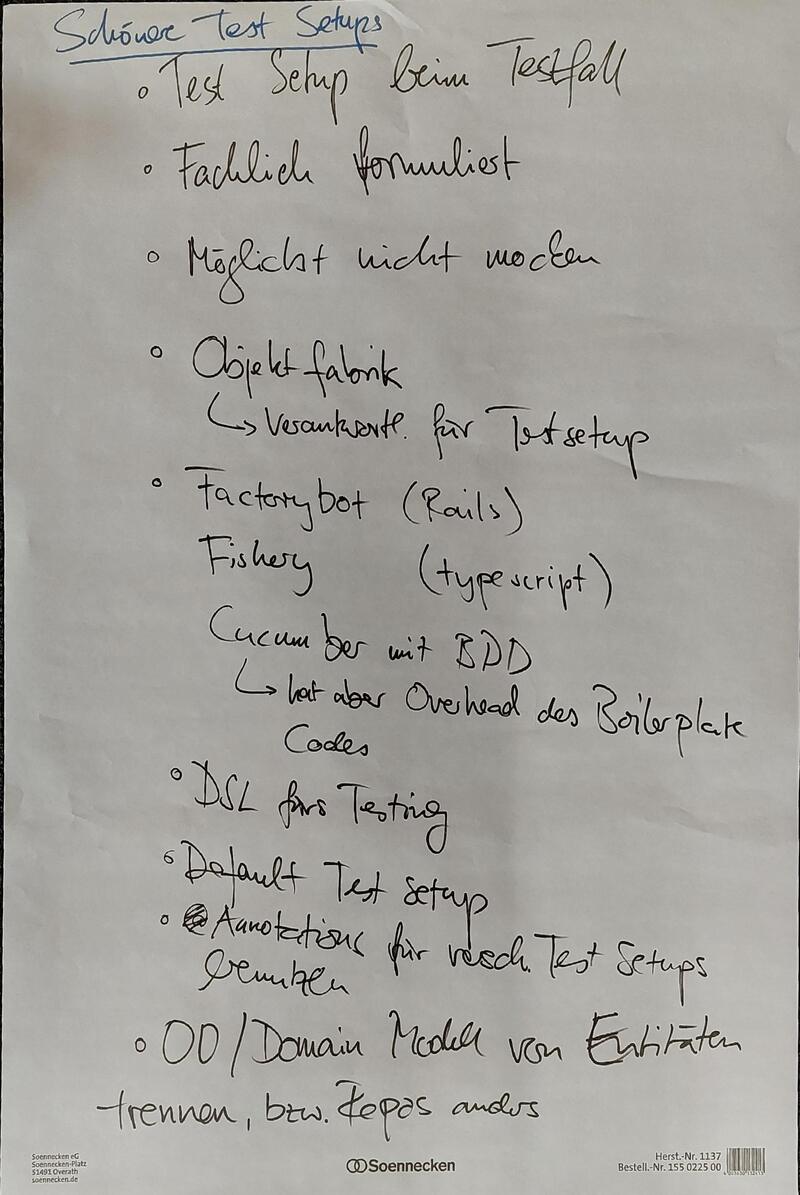 Schöner Test Setups
• Test Setup beim Testfall
• Fachlich formuliert
• Möglichst nicht mocken
• Objektfabrik
↳ Verantwortl. für Testsetup
• Factorybot (Rails)
Fishery (typescript)
Cucumber mit BDD
↳ hat aber Overhead des Boilerplate
Codes
• DSL fürs Testing
• Default Test Setup
• Annotations für versch. Test Setups
benutzen
• OO/Domain Modell von Entitäten
trennen, bzw. Repos anders
Soennecken eG
Soennecken-Platz
51491 Overath
soennecken.de
Soennecken
Herst.-Nr. 1137
Bestell.-Nr. 155 0225 00